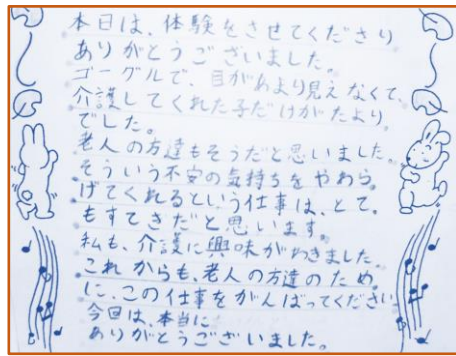 本日は、体験をさせてくださり
ありがとうございました。
ゴーグルで、目があより見えなくて、
介護してくれた子だけがたより
でした。
老人の方達もそうだと思いました。
そういう不安の気持ちをやわら
げてくれるという仕事は、とて
もすてきだと思います。
私も、介護に興味がわきました。
これからも、老人の方達のため
に、この仕事をがんばってください
今回は、本当に
ありがとうございました。